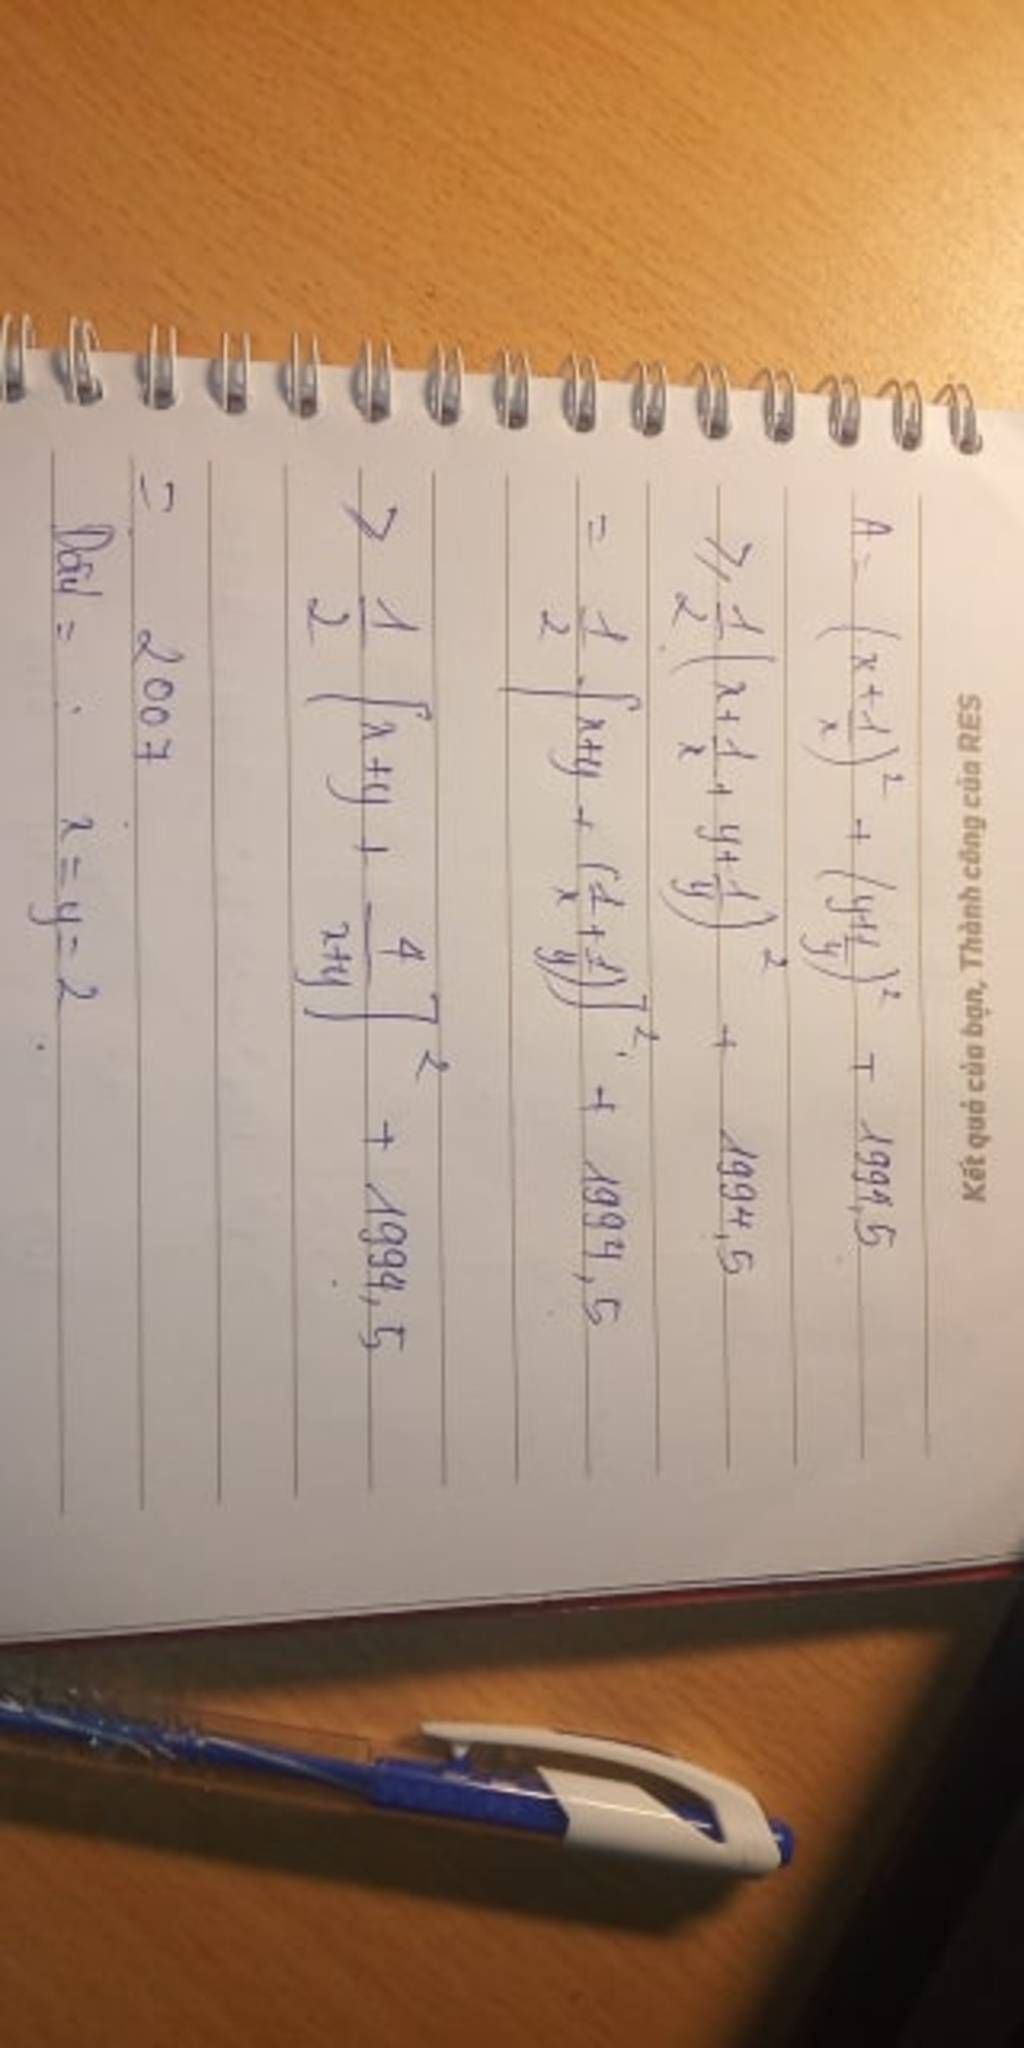 Kết quả của bạn, Thành công của RES
A = (x + 1/x)² + (y + 1/y)² + 1994,5
⩾ 1/2 (x + 1/x + y + 1/y)² + 1994,5
= 1/2 [x+y + (1/x + 1/y)]² + 1994,5
> 1/2 [x+y + 4/x+y]² + 1994,5
= 2007
Dấu = x = y = 2